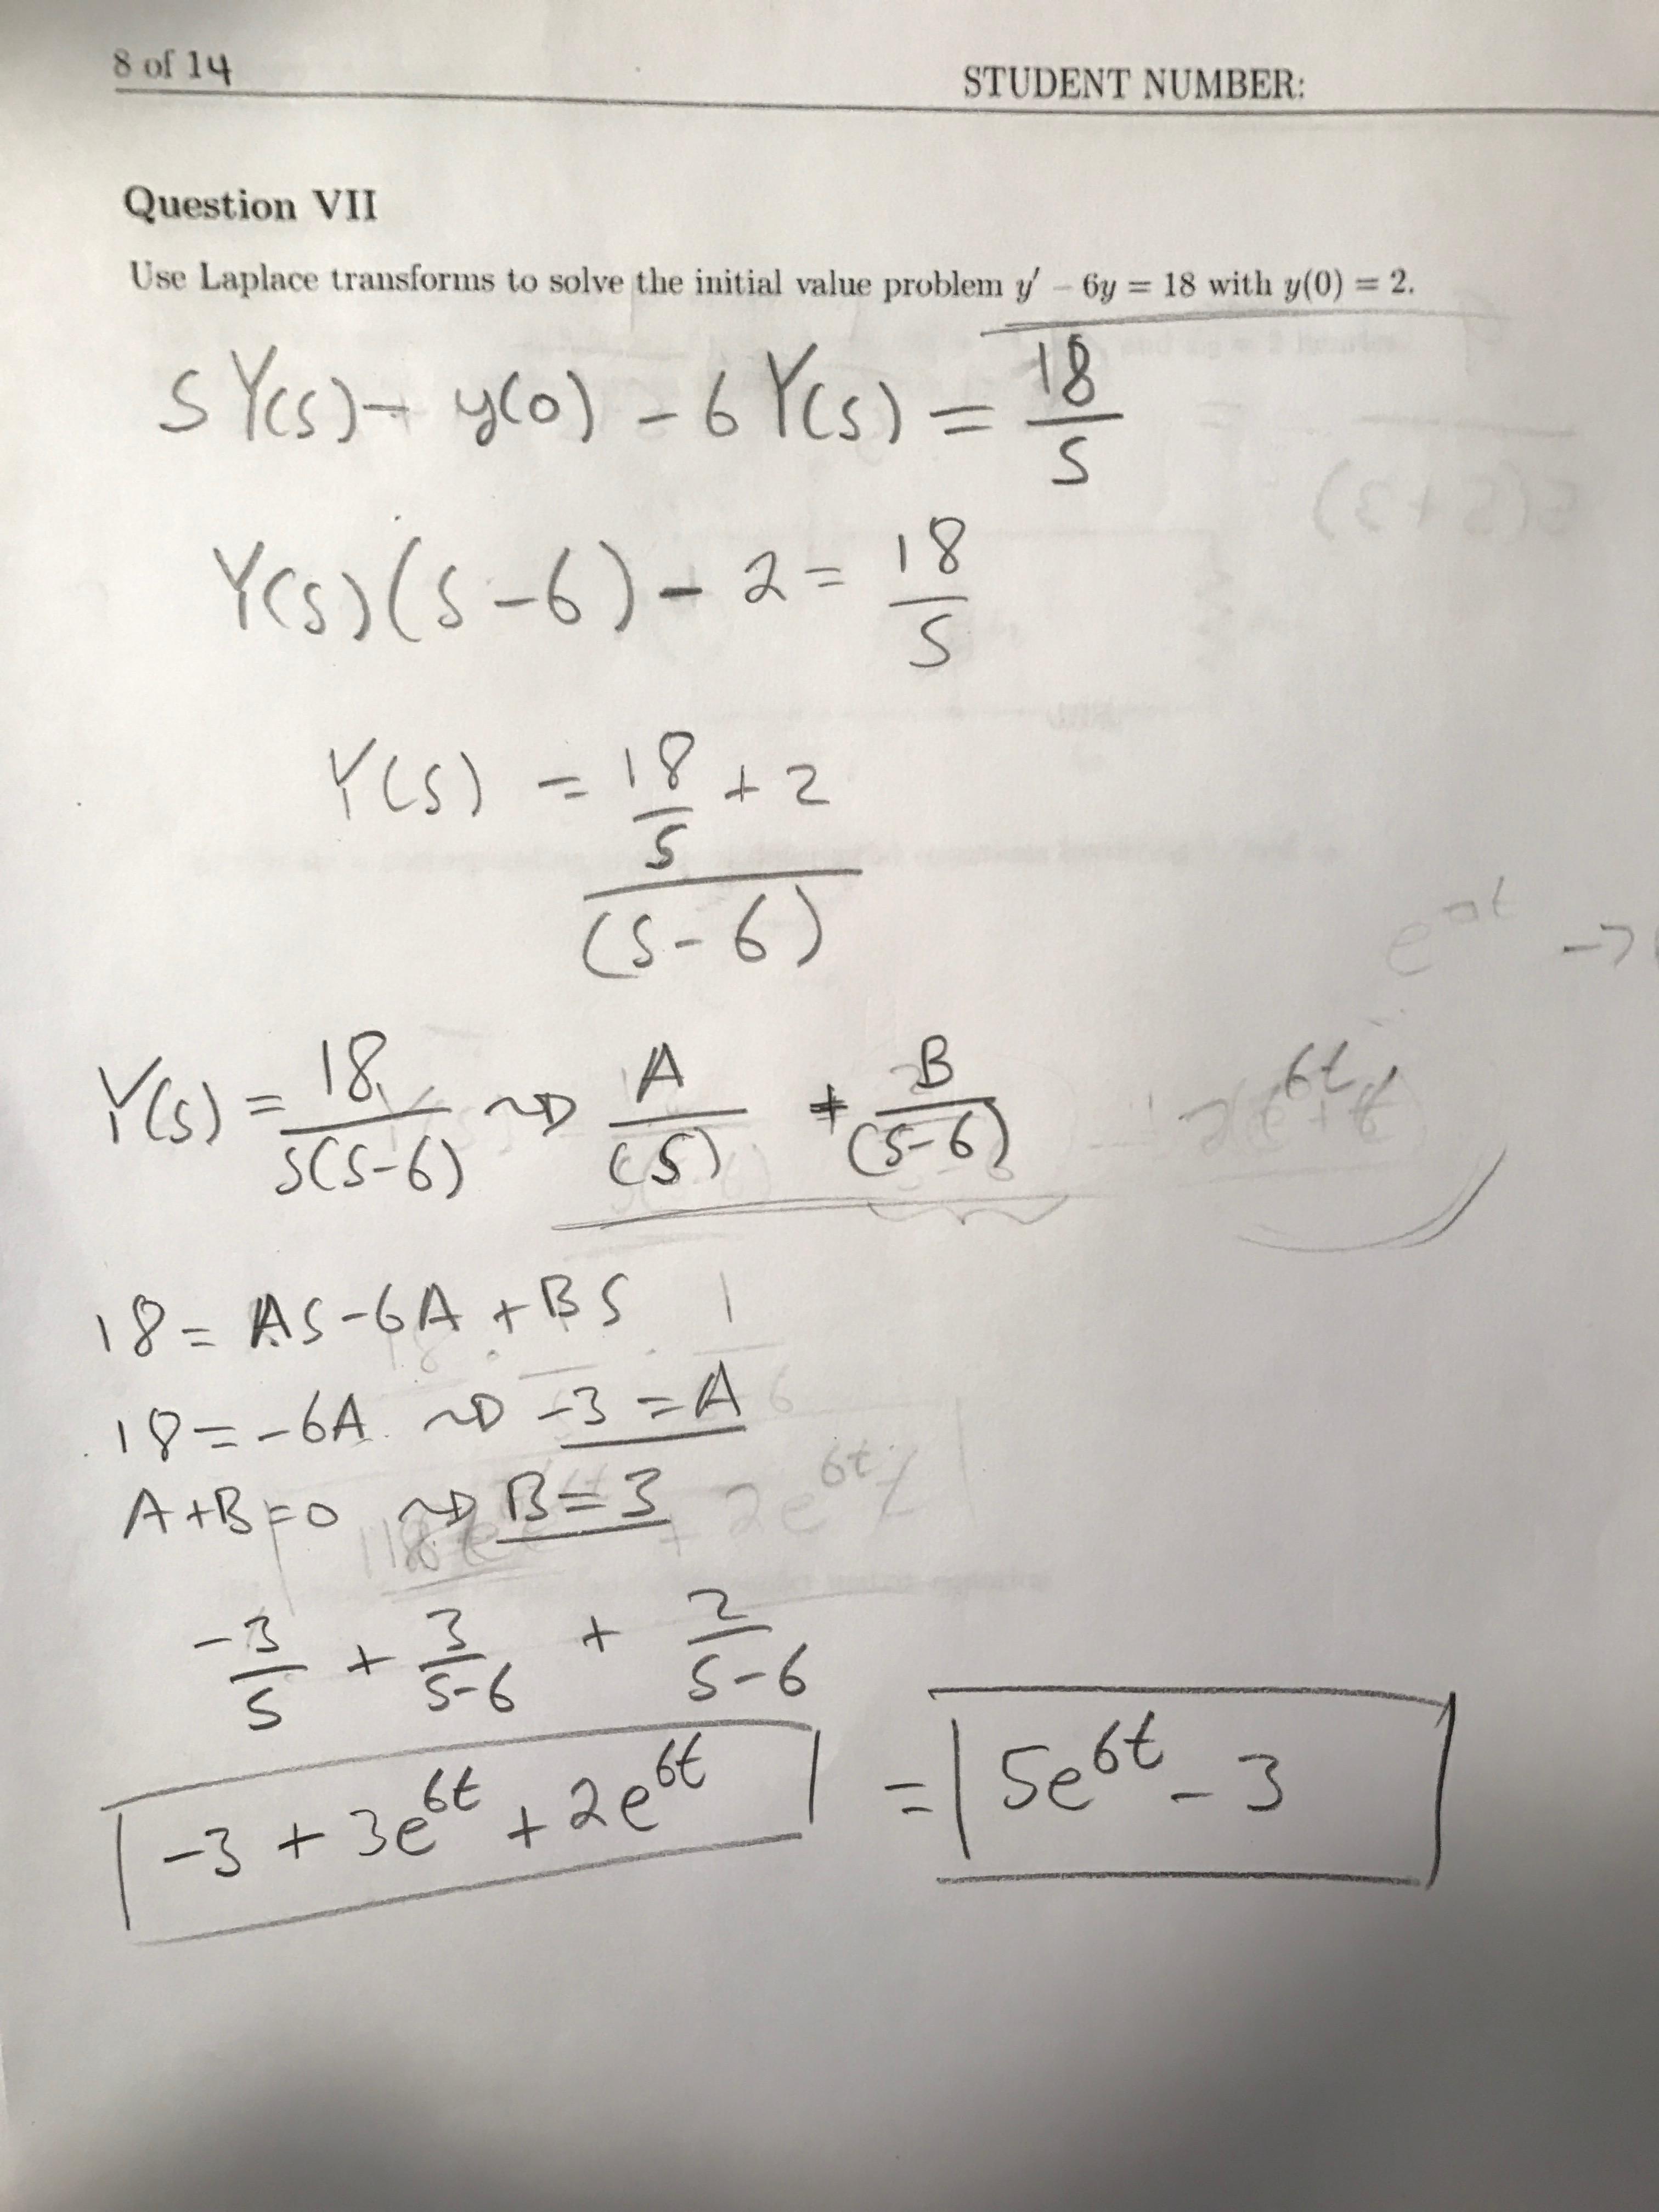 8 of 14
STUDENT NUMBER:
Question VII
Use Laplace transforms to solve the initial value problem y′ − 6y = 18 with y(0) = 2.
SY(s) - y(0) - 6Y(s) = 18/s
Y(s)(s-6) - 2 = 18/s
Y(s) = (18/s + 2)/(s-6)
e^at →
Y(s) = 18/(s(s-6)) ~> A/(s) + B/(s-6)
18 = AS - 6A + BS
18 = -6A ~> -3 = A
A+B=0 ~> B=3
-3/s + 3/(s-6) + 2/(s-6)
-3 + 3e^6t + 2e^6t = 5e^6t - 3